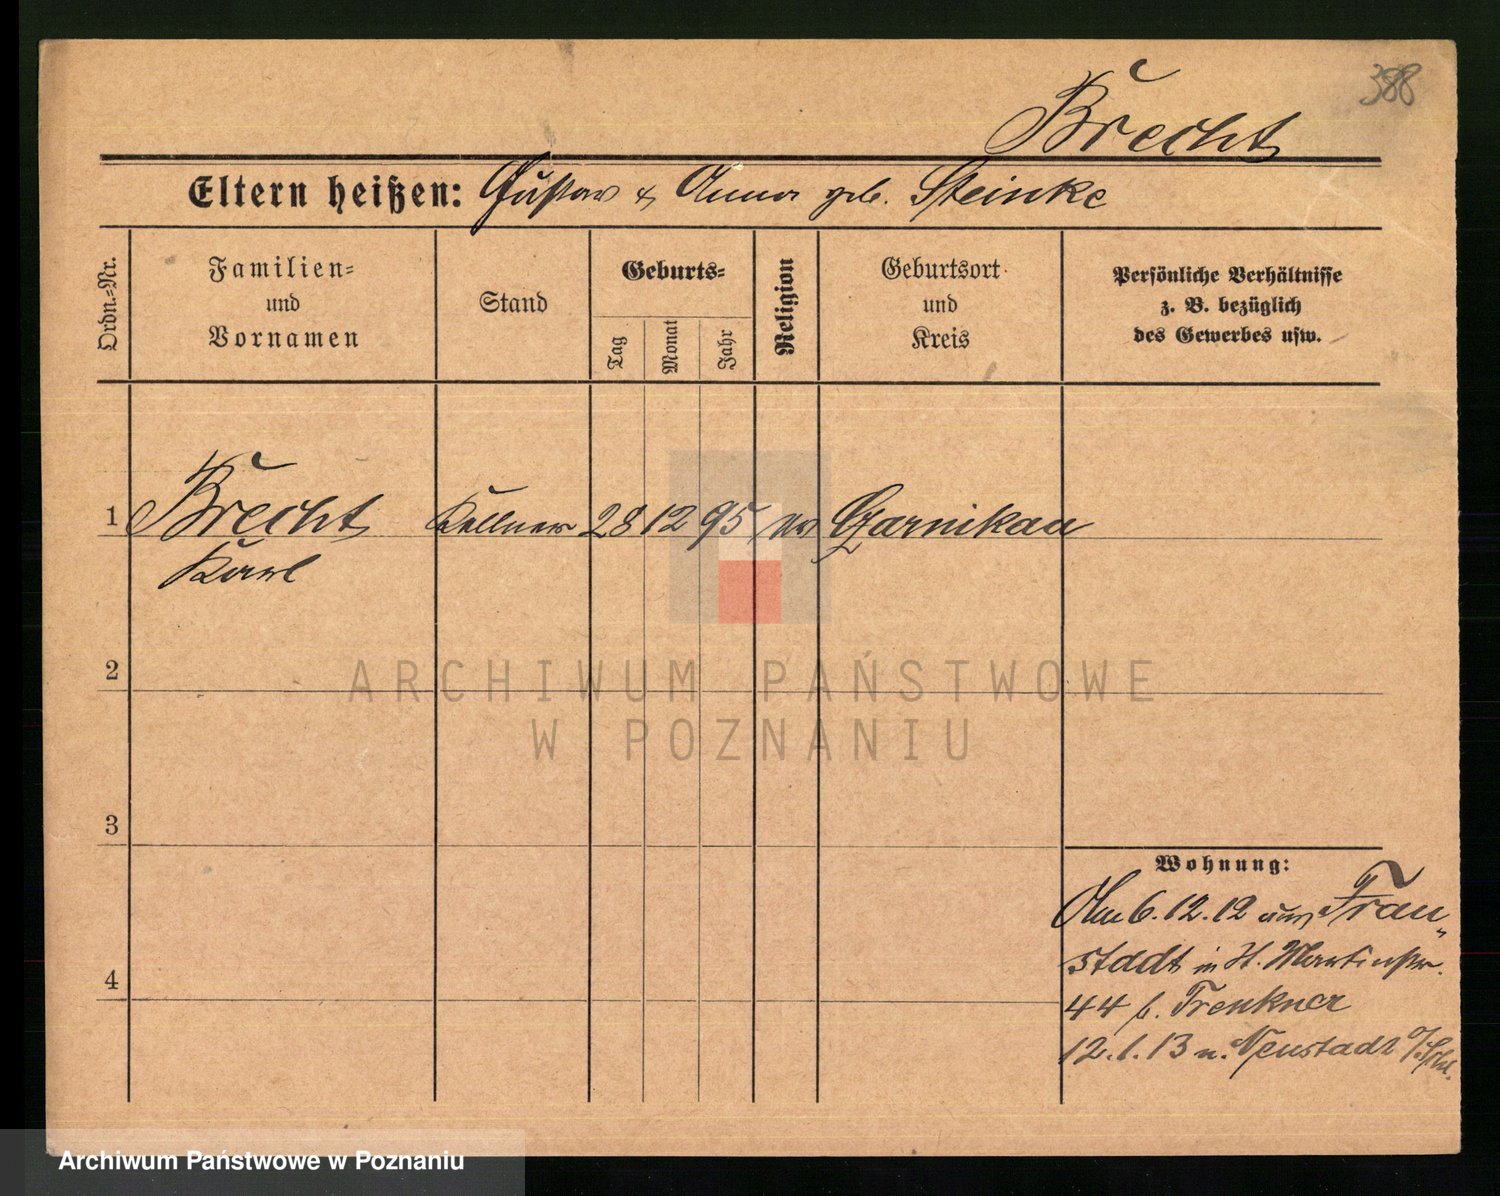 388
Brecht
Eltern heißen: Gustav & Anna geb. Steinke
Ordn.=Nr.
Familien=
und
Vornamen
Stand
Geburts=
Tag
Monat
Jahr
Religion
Geburtsort
und
Kreis
Persönliche Verhältnisse
z. B. bezüglich
des Gewerbes usw.
1 Brecht Kellner 28 12 95 ev Czarnikau
Karl
2
3
4
Wohnung:
Am 6.12.12 aus Frau„
stadt in St. Martinstr.
44 b. Trenkner
12.1.13 n. Neustadt
ARCHIWUM PAŃSTWOWE
W POZNANIU
Archiwum Państwowe w Poznaniu